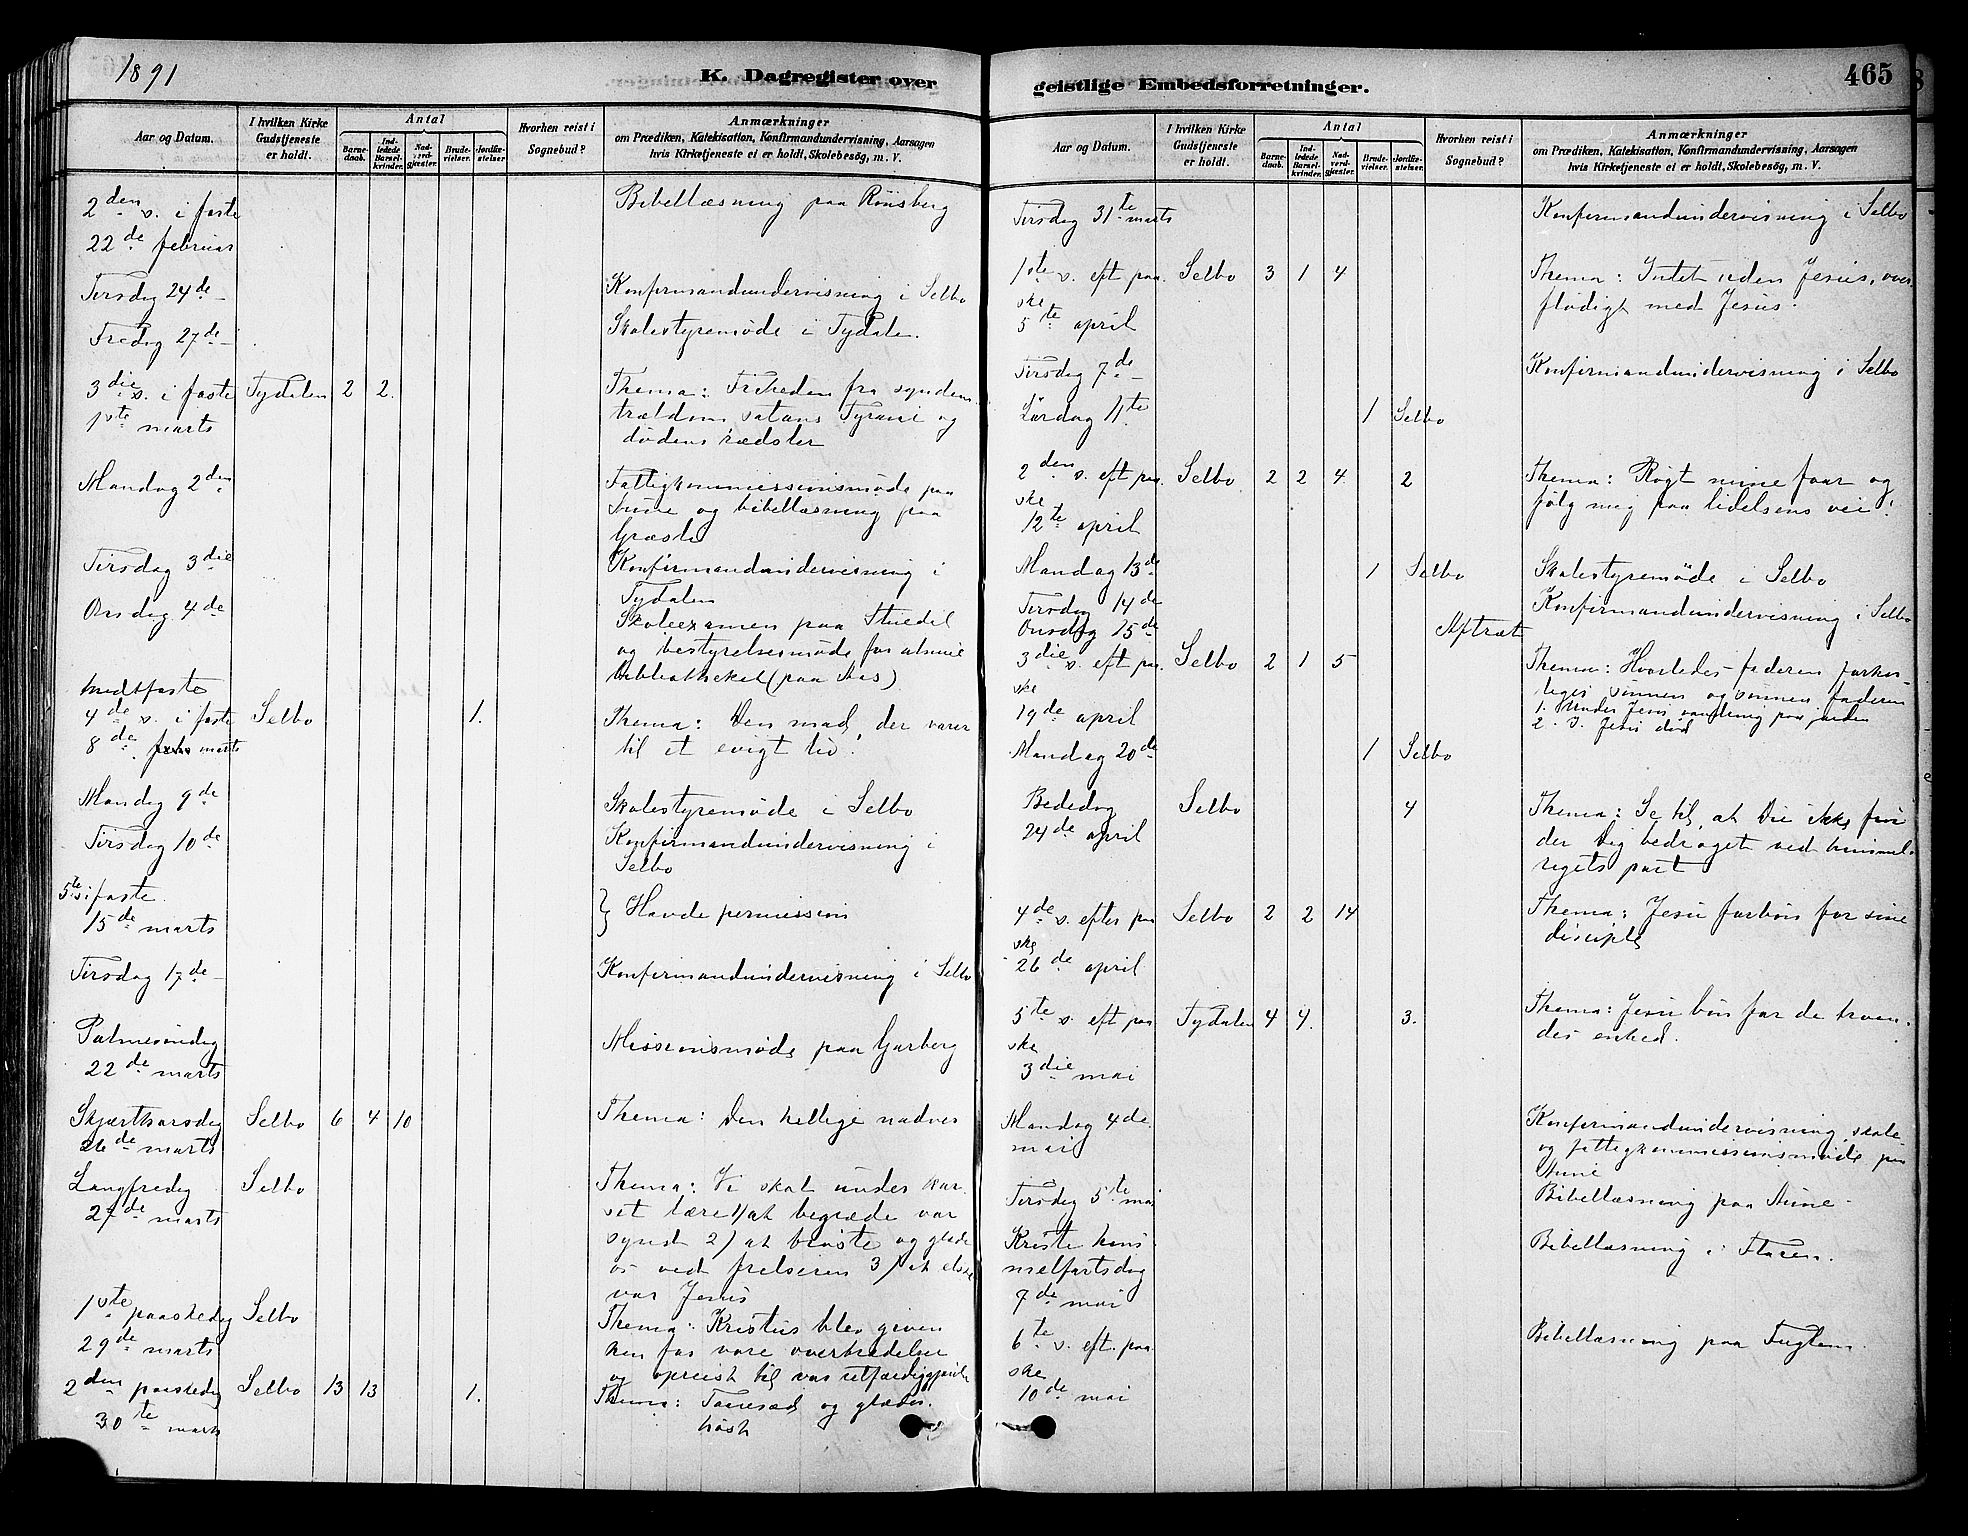 1891
K. Dagregister over
Aar og Datum.
I hvilken Kirke Gudstjeneste er holdt.
Antal
Barne-daab.
Ind-ledede Barsel-kvinder.
Nad-verd-gjæster.
Brude-vielser.
Jordfæ-stelser.
Hvorhen reist i Sognebud?
Anmærkninger
om Prædiken, Katekisation, Konfirmandundervisning, Aarsagen
hvis Kirketjeneste ei er holdt, Skolebesög, m. V.
2den s. i faste Bibellæsning paa Rönsberg
22de februar
Tirsdag 24de Konfirmandundervisning i Selbo
Fredag 27de Skolestyremøde i Tydalen.
3die s. i faste Tydalen 2 2. Thema: Friheden fra syndens
1ste marts trældom, satans Tyrani og
dødens rædsler
Mandag 2den Fattigkommissionsmøde paa
Aune og bibellæsning paa
Græsli
Tirsdag 3die Konfirmandundervisning i
Tydalen
Onsdag 4de Skoleexamen paa Stuedal
og bestyrelsesmøde for almue
bibliotheket (paa Aas)
Midtfaste
4de s. i faste Selbo 1. Thema: Den mad, der varer
8de marts til et evigt liv.
Mandag 9de Skolestyremøde i Selbo
Tirsdag 10de Konfirmandundervisning i
Selbo
5te s. i faste
15de marts } Havde permission
Tirsdag 17de Konfirmandundervisning i Selbo
Palmesöndag
22de marts Missionsmøde paa Garberg
Skjærthorsdag Selbo 6 4 10 Thema: Den hellige nadver
26de marts
Langfredag Selbo Thema: Vi skal under kor-
27de marts set lære 1) at begræde vor
synd 2) at trøste og glæde
os ved frelseren 3) at elske
vor Jesus
1ste paaskedag Selbo Thema: Kristus blev given
29de marts hen for vore overtrædelser
og opreist til vor retfærdiggjørelse
2den paaskedag Selbo 13 13 1. Thema: Taaresæd og glædes-
30te marts høst
geistlige Embedsforretninger.
465
Aar og Datum.
I hvilken Kirke Gudstjeneste er holdt.
Antal
Barne-daab.
Ind-ledede Barsel-kvinder.
Nad-verd-gjæster.
Brude-vielser.
Jordfæ-stelser.
Hvorhen reist i Sognebud?
Anmærkninger
om Prædiken, Katekisation, Konfirmandundervisning, Aarsagen
hvis Kirketjeneste ei er holdt, Skolebesög, m. V.
Tirsdag 31te marts Konfirmandundervisning i Selbo
1ste s. eft paa Selbo 3 1 4 Thema: Intet uden Jesus, over
ske flødigt med Jesus.
5te april
Tirsdag 7de Konfirmandundervisning i Selbo
Lördag 11te 1 Selbo
2den s. eft paa Selbo 2 2 4. 2 Thema: Røgt mine faar og
ske følg mig paa lidelsens vei!
12te april
Mandag 13de 1 Selbo Skolestyremøde i Selbo
Tirsdag 14de Konfirmandundervisning i Selbo
Onsdag 15de Aftræt
3die s. eft paa Selbo 2 1 5 Thema: Hvorledes faderen forher-
ske liges sønnen og sønnen faderen
1. Under Jesu vandring paa jorden
19de april 2. I Jesu død
Mandag 20de 1 Selbo
Bededag Selbo 4 Thema: Se til, at Du ikke fin
24de april der Dig bedraget ved himmel-
rigets port
4de s. efter paa Selbo 2 2 14 Thema: Jesu forbön for sine
ske disciple
26de april
5te s. eft paa Tydalen 4 4. 3. Thema: Jesu bön for de troen-
ske des enhed.
3die mai
Mandag 4de Konfirmandundervisning, skole-
mai og fattigkommissionsmøde paa
Aune
Tirsdag 5te mai Bibellæsning paa Aune
Kriste him- Bibellæsning i Floren.
melfartsdag
7de mai
6te s. eft. paa Bibellæsning paa Fuglem.
ske
10de mai